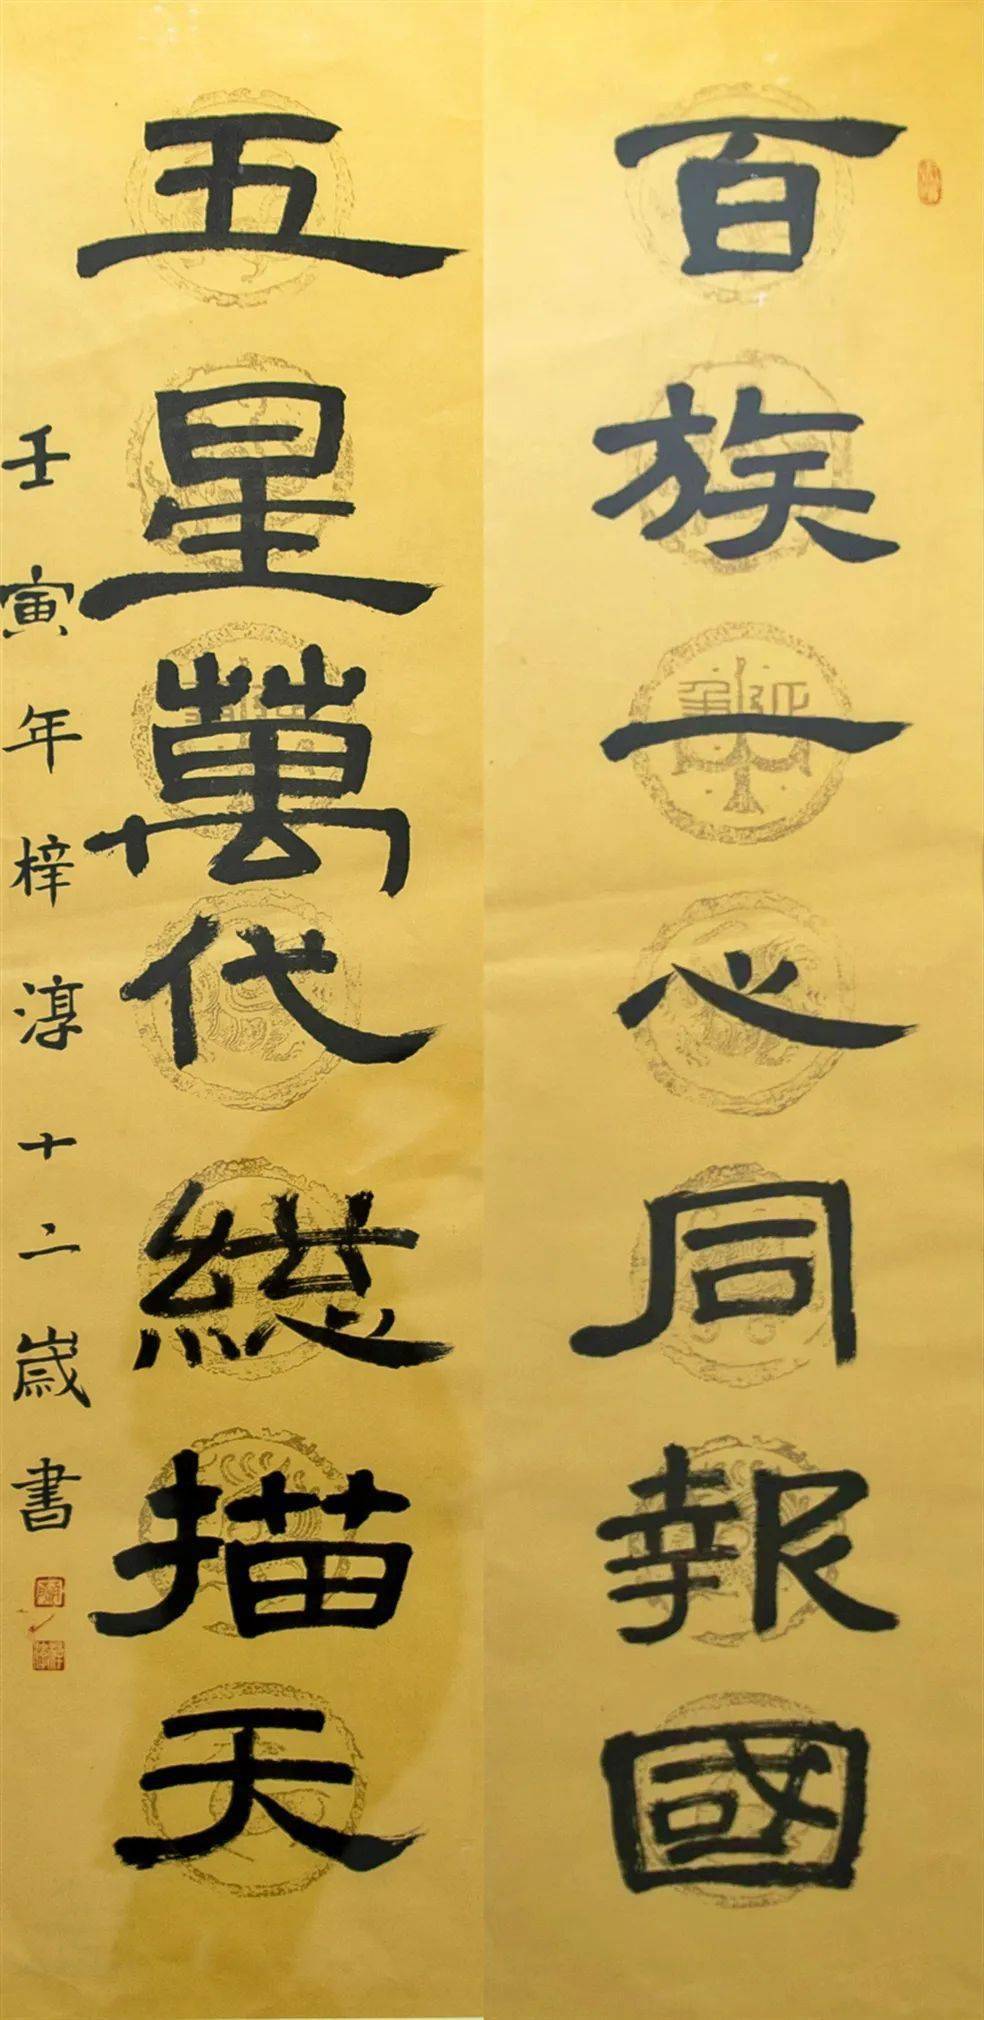 百族一心同報國
五星萬代總描天
壬寅年梓淳十二歲書